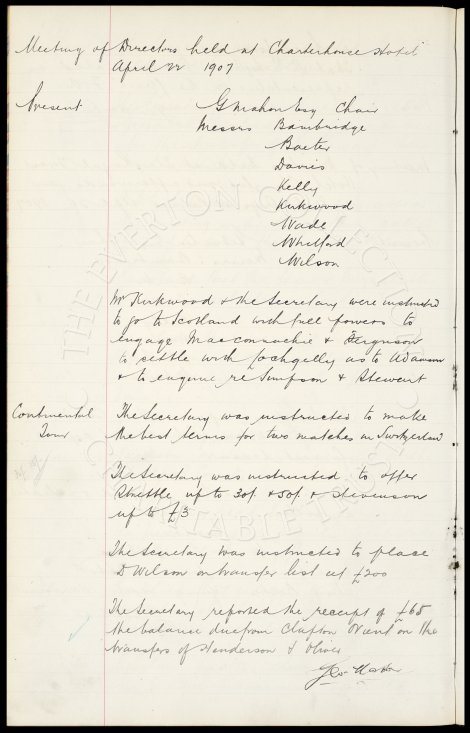 Meeting of Directors held at Charterhouse Hotel
April 22 1907
Present G Mahon Esq Chair
Messrs Bambridge
Baxter
Davies
Kelly
Kirkwood
Wade
Whitford
Wilson
Mr Kirkwood & the Secretary were instructed
to go to Scotland with full powers to
engage Macconnachie & Ferguson
to settle with Lochgelly as to Adamson
& to enquire re Simpson & Stewart
Continental The Secretary was instructed to make
Tour the best terms for two matches in Switzerland
The Secretary was instructed to offer
Strettle up to 30/- & 50/- & Stevenson
up to £3
The Secretary was instructed to place
D Wilson on transfer list at £200
The Secretary reported the receipt of £65
the balance due from Clapton Orient on the
transfers of Henderson & Oliver
Geo Mahon
THE EVERTON COLLECTION
CHARITABLE TRUST